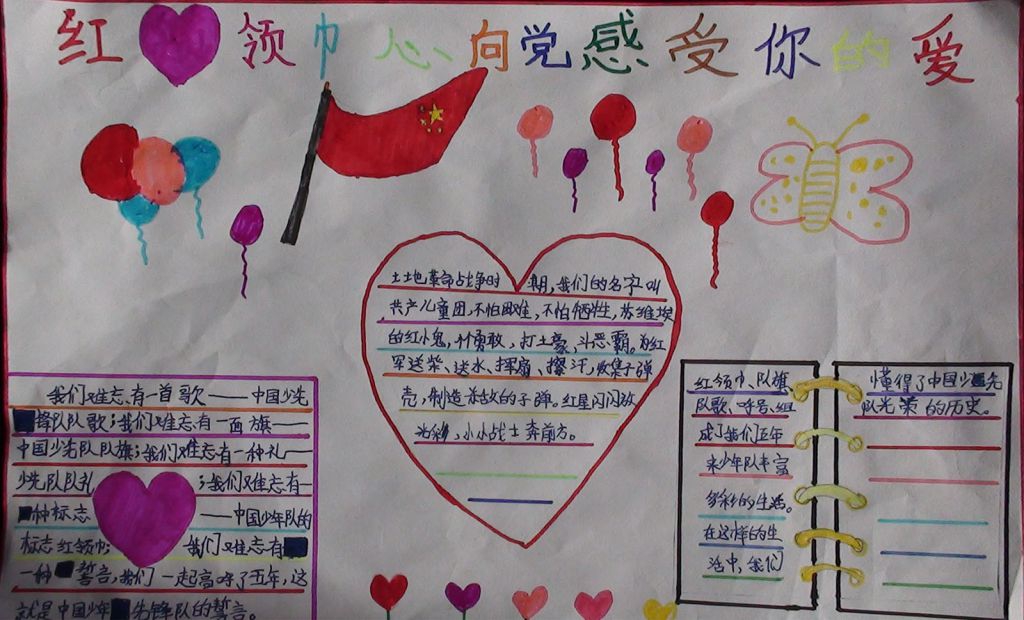 红领巾心向党感受你的爱
土地革命战争时期,我们的名字叫
共产儿童团,不怕困难,不怕牺牲,苏维埃
的红小鬼,什勇敢,打土豪、斗恶霸。为红
军送柴、送水、挥扇、擦汗,收集子弹
壳,制造杀敌的子弹。红星闪闪放
光彩,小小战士奔前方。
我们难忘有一首歌——中国少先
锋队队歌;我们难忘有一面旗——
中国少先队队旗;我们难忘有一种礼—
少先队队礼;我们难忘有一
种标志——中国少年队的
标志红领巾;我们难忘有
一种誓言,我们一起高呼了五年,这
就是中国少年先锋队的誓言。
红领巾、队旗、
队歌、呼号、组
成了我们五年
来少年队丰富
多彩的生活。
在这样的生
活中,我们
懂得了中国少先
队光荣的历史。